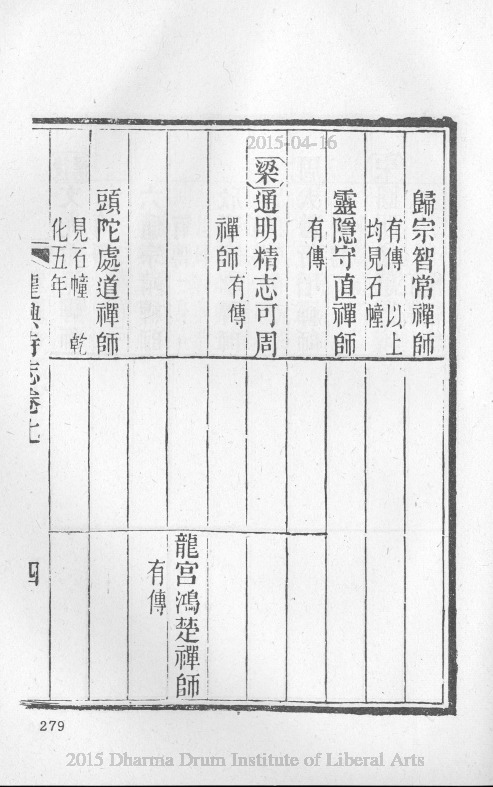 2015-04-16
歸宗智常禪師
有傳 以上
均見石幢
靈隱守直禪師
有傳
梁通明精志可周
禪師 有傳
龍宮鴻楚禪師
有傳
頭陀處道禪師
見石幢 乾
化五年
龍興寺志卷七
四
279
2015 Dharma Drum Institute of Liberal Arts